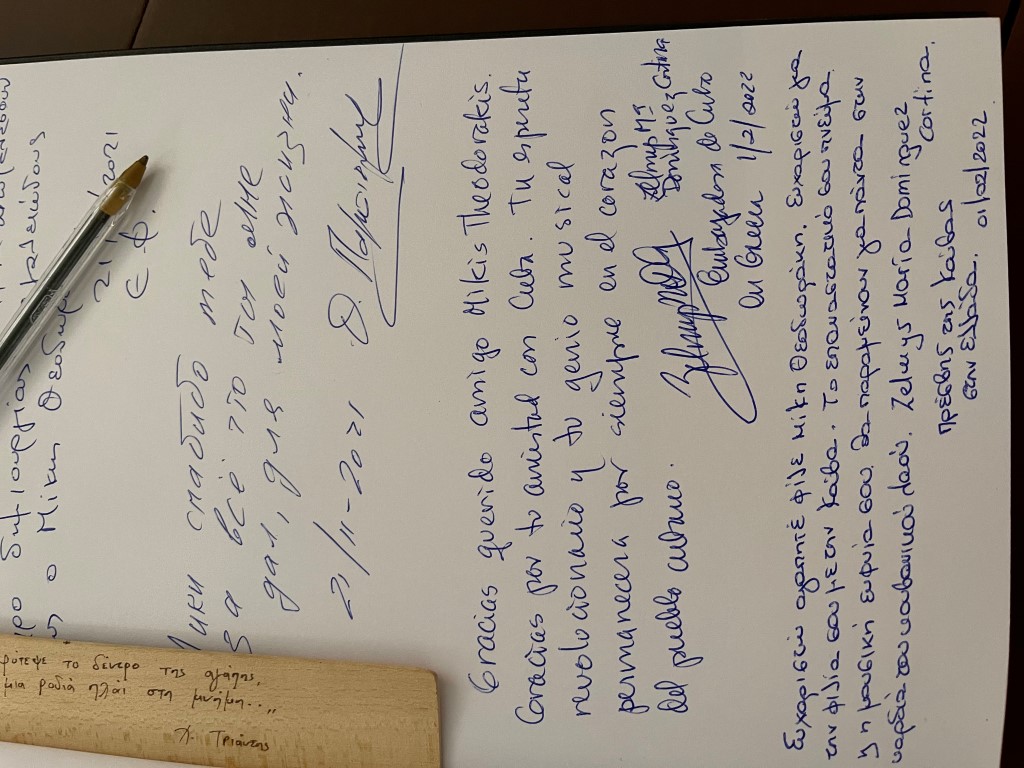 δημιουργίας
ο Μίκης Θεοδωρ
21 /2021
Ε Φ.
το δέντρο της αγάπης,
στη μνήμη..."
ики спасибо тебе
за всё что ты мне
дал, для моей жизни.
21/11-2021
Gracias querido amigo Mikis Theodorakis.
Gracias por tu amistad con Cuba. Tu espiritu
revolucionario y tu genio musical
permanecera por siempre en el corazon
del pueblo cubano.
Zelmys Mª
Dominguez Cortina
Embajadora de Cuba
en Grecia 1/2/2022
Ευχαριστώ αγαπητέ φίλε Μίκη Θεοδωράκη. Ευχαριστώ για
την φιλία σου με την Κούβα. Το επαναστατικό σου πνεύμα
κ η μουσική ευφυία σου θα παραμείνουν για πάντα στην
καρδιά του κουβανικού λαού. Zelmys María Dominguez
Cortina.
πρέσβης της Κούβας
στην Ελλάδα. 01/02/2022